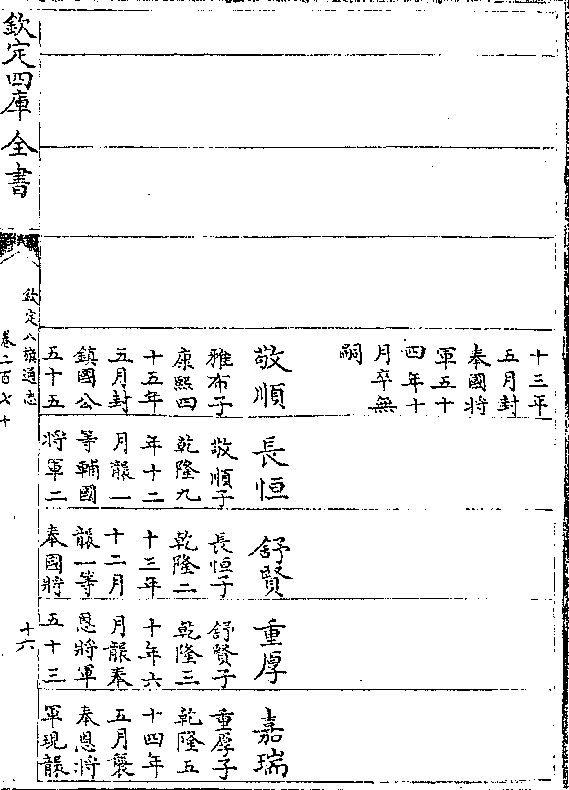 十三年
五月封
奉國將
軍五十
四年十
月卒無
嗣
敬順
雅布子
康熙四
十五年
五月封
鎮國公
五十五
長恒
敬順子
乾隆九
年十二
月襲一
等輔國
將軍二
舒賢
長恒子
乾隆二
十三年
十二月
襲一等
奉國將
重厚
舒賢子
乾隆三
十年六
月襲奉
恩將軍
五十三
嘉瑞
重厚子
乾隆五
十四年
五月襲
奉恩將
軍現襲
欽定四庫全書
欽定八旗通志
卷二百七十
十六